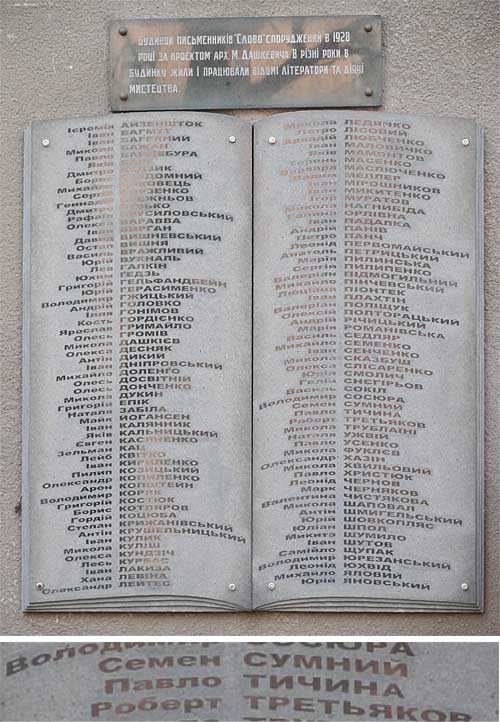 Будинок письменників "Слово" споруджений в 1928
році за проектом арх. М. Дашкевича. В різні роки в
будинку жили і працювали відомі літератори та діячі
мистецтва.
Ієремія АЙЗЕНШТОК
Іван БАГМУТ
Іван БАГРЯНИЙ
Микола БАЖАН
Павло БАЙДЕБУРА
Яків
Дмитро БЕДЗИК
Борис БЕЗДОМНИЙ
Михайло БИКОВЕЦЬ
Сергій БОРЗЕНКО
Геннадій БРЕЖНЬОВ
Дмитро БУЗЬКО
Рафаїл БРУСИЛОВСЬКИЙ
Олекса ВАРАВВА
Іван ВИРГАН
Давид ВИШНЕВСЬКИЙ
Остап ВИШНЯ
Василь ВРАЖЛИВИЙ
Юрій ВУХНАЛЬ
Лев ГАЛКІН
Юхим ГЕДЗЬ
Григорій ГЕЛЬФАНДБЕЙН
Юрій ГЕРАСИМЕНКО
Володимир ГЖИЦЬКИЙ
Андрій ГОЛОВКО
Ілля ГОНІМОВ
Кость ГОРДІЄНКО
Ярослав ГРИМАЙЛО
Олесь ГРОМІВ
Микола ДАШКІЄВ
Олекса ДЕСНЯК
Антін ДИКИЙ
Іван ДНІПРОВСЬКИЙ
Михайло ДОЛЕНГО
Олесь ДОСВІТНІЙ
Олесь ДОНЧЕНКО
Микола ДУКИН
Григорій ЕПІК
Наталя ЗАБІЛА
Майк ЙОГАНСЕН
Іван КАЛЯННИК
Яків КАЛЬНИЦЬКИЙ
Євген КАСЯНЕНКО
Зельман КАЦ
Лейб КВІТКО
Іван КИРИЛЕНКО
Пилип КОЗИЦЬКИЙ
Олександр КОПИЛЕНКО
Арон КОПШТЕЙН
Володимир КОРЯК
Григорій КОСТЮК
Борис КОТЛЯРОВ
Гордій КОЦЮБА
Степан КРИЖАНІВСЬКИЙ
Антін КРУШЕЛЬНИЦЬКИЙ
Іван КУЛИК
Микола КУЛІШ
Олекса КУНДЗІЧ
Лесь КУРБАС
Іван ЛАКИЗА
Хана ЛЕВІНА
Олександр ЛЕЙТЕС
Микола ЛЕДЯНКО
Петро ЛІСОВИЙ
Аркадій ЛЮБЧЕНКО
Іван МАЛОВІЧКО
Яків МАМОНТОВ
Семен МАСЕНКО
Варвара МАСЛЮЧЕНКО
Вадим МЕЛЛЕР
Іван МІРОШНИКОВ
Іван МИКИТЕНКО
Ігор МУРАТОВ
Микола НАГНИБІДА
Галина ОРЛІВНА
Іван ПАДАЛКА
Андрій ПАНІВ
Петро ПАНЧ
Леонід ПЕРВОМАЙСЬКИЙ
Анатоль ПЕТРИЦЬКИЙ
Марія ПИЛИНСЬКА
Сергій ПИЛИПЕНКО
Валер'ян ПІДМОГИЛЬНИЙ
Михайло ПІНЧЕВСЬКИЙ
Леонід ПІОНТЕК
Іван ПЛАХТІН
Олекса ПОЛІЩУК
Олексій ПОЛТОРАЦЬКИЙ
Андрій РІЧИЦЬКИЙ
Марія РОМАНІВСЬКА
Василь СЕДЛЯР
Михайль СЕМЕНКО
Іван СЕНЧЕНКО
Микола СКАЗБУШ
Олекса СЛІСАРЕНКО
Юрій СМОЛИЧ
Гелій СНЄГІРЬОВ
Василь СОКІЛ
Володимир СОСЮРА
Семен СУМНИЙ
Павло ТИЧИНА
Роберт ТРЕТЬЯКОВ
Микола ТРУБЛАЇНІ
Наталя УЖВІЙ
Павло УСЕНКО
Микола ФУКЛЄВ
Олександр ХАЗІН
Микола ХВИЛЬОВИЙ
Павло ХРИСТЮК
Леонід ЧЕРНОВ
Марк ЧЕРНЯКОВ
Валентина ЧИСТЯКОВА
Микола ШАПОВАЛ
Антін ШМИГЕЛЬСЬКИЙ
Юрій ШОВКОПЛЯС
Юліан ШПОЛ
Микита ШУМИЛО
Іван ШУТОВ
Самійло ЩУПАК
Володимир ЮРЕЗАНСЬКИЙ
Леонід ЮХВІД
Михайло ЯЛОВИЙ
Юрій ЯНОВСЬКИЙ
Володимир СОСЮРА
Семен СУМНИЙ
Павло ТИЧИНА
Роберт ТРЕТЬЯКОВ